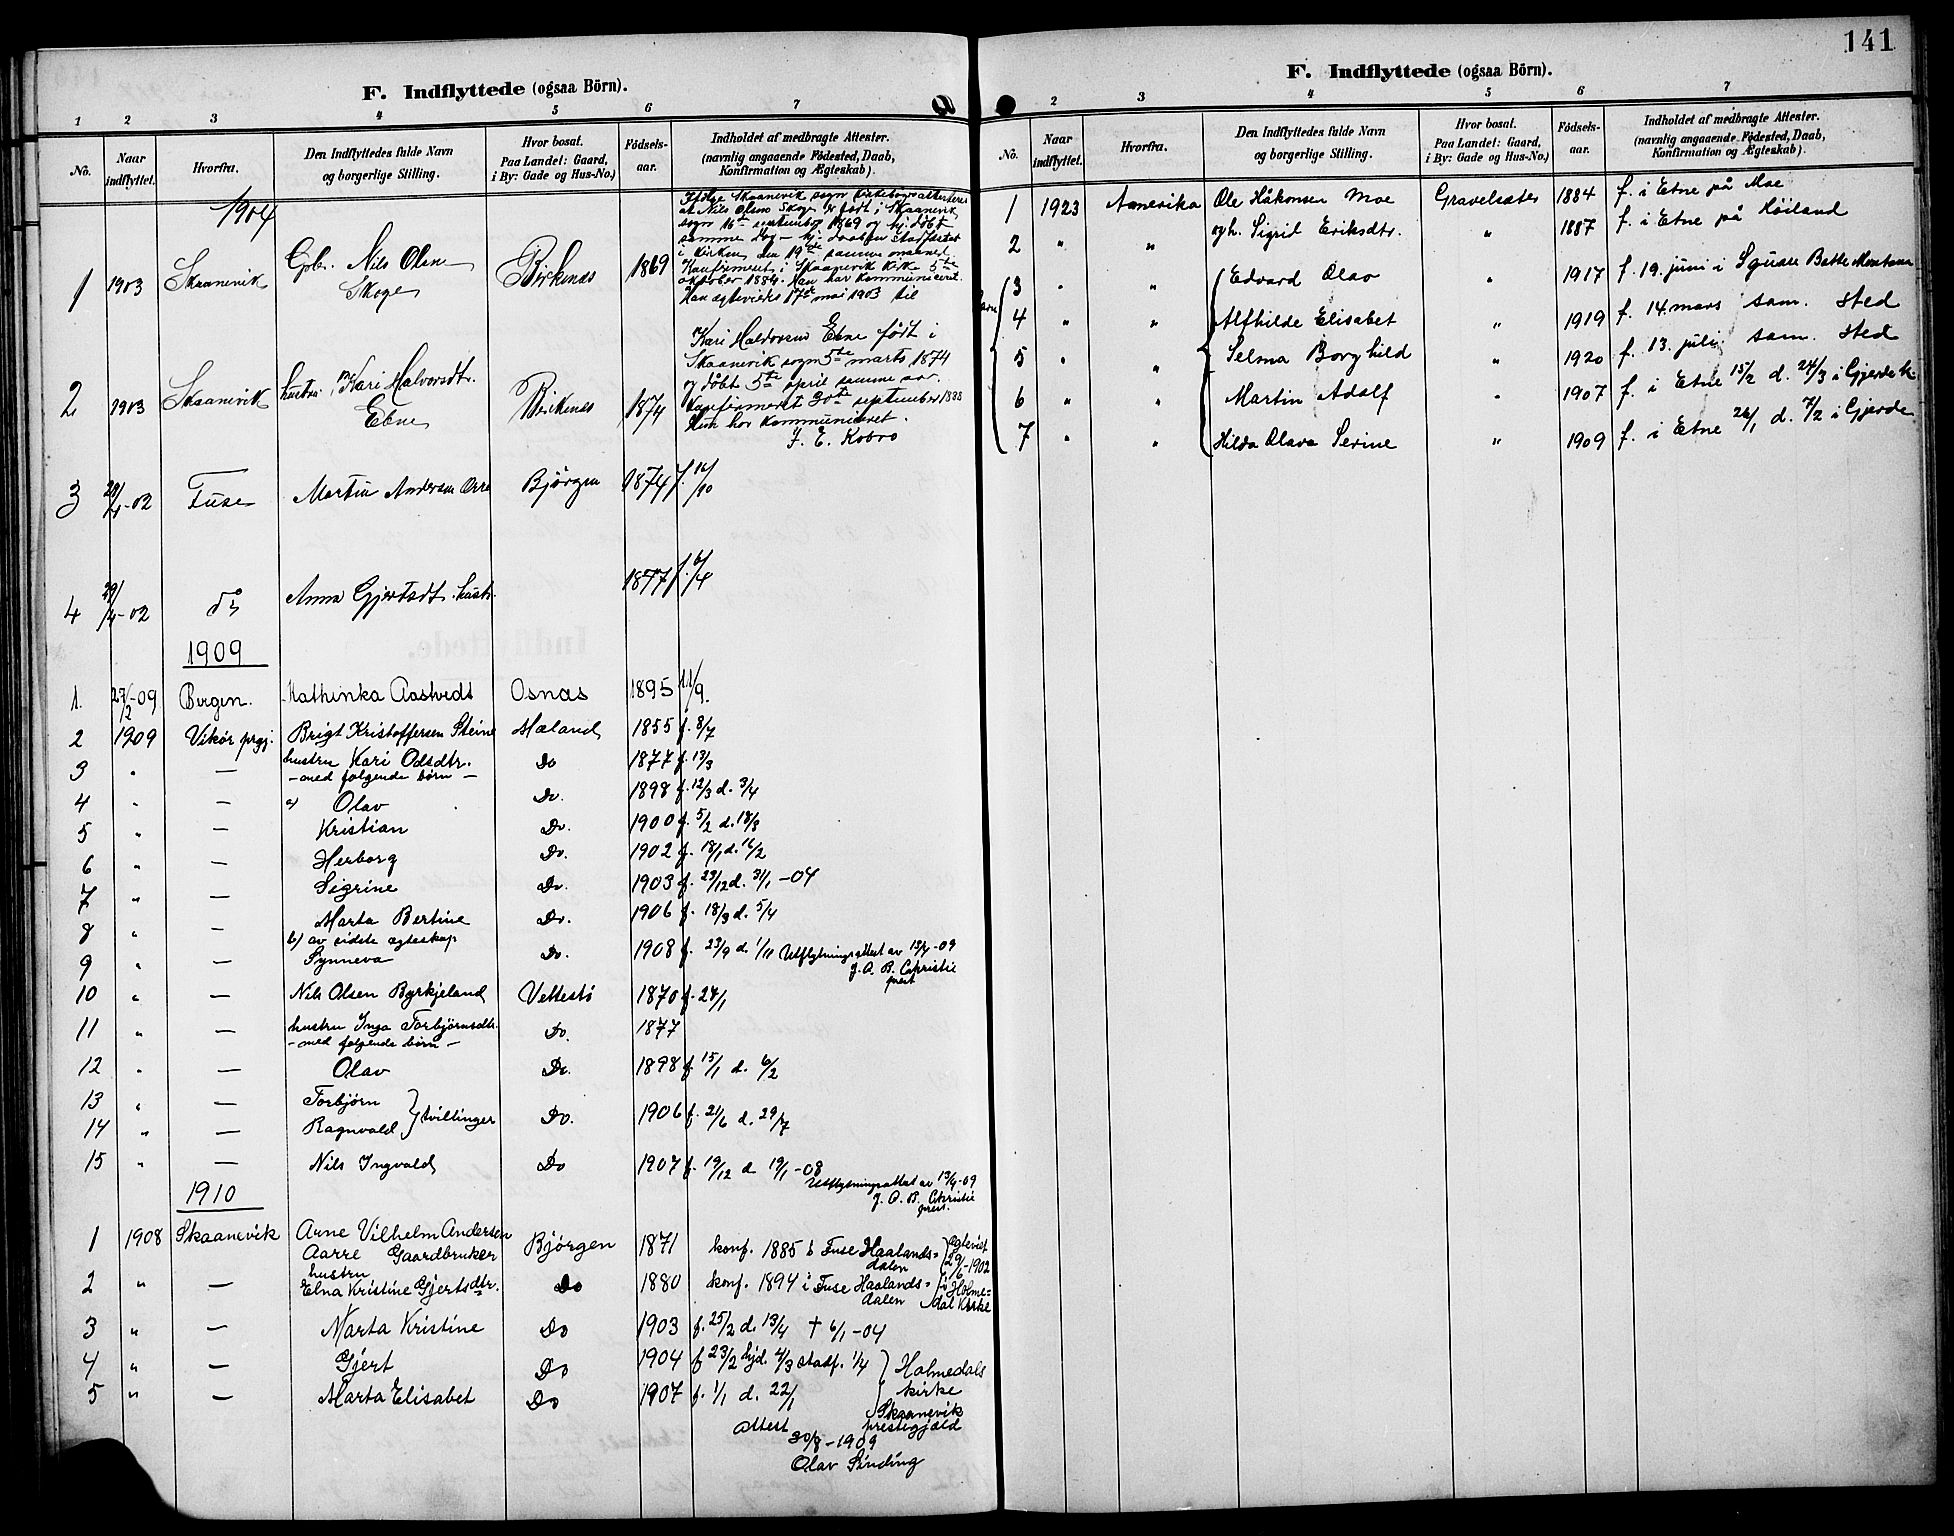 141
F. Indflyttede (ogsaa Börn).
1 2 3 4 5 6 7
No. Naar indflyttet. Hvorfra. Den Indflyttedes fulde Navn og borgerlige Stilling. Hvor bosat. Paa Landet: Gaard, i By: Gade og Hus-No.) Fødsels-aar. Indholdet af medbragte Attester. (navnlig angaaende Fødested, Daab, Konfirmation og Ægteskab).
1904
1 1903 Skaanevik Gbr. Nils Olsen Skoge Birkenes 1869
Ifølge Skaanevik sogns kirkebog attesteres
at Nils Olsen Skoge er født i Skaanevik
sogn 16de september 1869 og hj. døbt
samme dag — hj. daaben stadfæstet
i kirken den 19de samme maaned.
Konfirmeret i Skaanevik kirke 5te
oktober 1884. Han har kommuniceret.
Han ægteviets 17de mai 1903 til
2 1903 Skaanevik hustru Kari Halvorsdtr. Ebne Birkenes 1874
Kari Haldorsen Ebne født i
Skaanevik sogn 5te marts 1874
og døbt 5te april samme aar.
Konfirmeret 30te september 1888
Hun har kommuniceret.
J. E. Kobro
3 28/4-02 Fuse Martin Andersen Orre Bjørgen 1874 f. 16/10
4 29/4-02 do Anna Gjertsdt. hustr. 1877 f. 6/4
1909
1. 27/2-09 Bergen. Kathinka Aastvedt Osnes 1895 11/9.
2 1909 Vikør prgj. Brigt Kristoffersen Steine Mæland 1855 f. 8/7
3 " — hustru Kari Odsdtr. Do 1877 f. 13/3
— med følgende børn —
4 " — a) Olav Do. 1898 f. 12/3 d. 3/4
5 " — Kristian Do. 1900 f. 5/2 d. 18/3
6 " — Herborg Do. 1902 f. 18/1 d. 16/2
7 " — Sigrine Do. 1903 f. 23/12 d. 31/1 -04
8 " — Marta Bertine Do. 1906 f. 18/3 d. 5/4
b) av sidste ægteskap
9 " — Synneva Do. 1908 f. 23/9 d. 1/11 Utflytningsattest av 13/4-09
J. A. B. Christie
prest
10 " — Nils Olsen Byrkjeland Vettestø 1870 f. 24/1
11 " — hustru Inga Torbjørnsdtr. Do. 1877
— med følgende børn —
12 " — Olav Do. 1898 f. 15/1 d. 6/2
13 " — Torbjørn
14 " — Ragnvald } tvillinger Do. 1906 f. 21/6 d. 29/7
15 " — Nils Ingvald Do 1907 f. 19/12 d 19/1 -08
Utflytningsattest av 13/4-09
J. A. B. Christie
prest.
1910
1 1908 Skaanevik Arne Vilhelm Andersen Aarre Gaardbruker Bjørgen 1871 konf. 1885 i Fuse Haalandsdalen
2 " — hustru Elna Kristine Gjertsdtr. Do 1880 konf. 1894 i Fuse Haalandsdalen
Ægteviet 29/6-1902 i Holmedal Kirke
3 " — Marta Kristine Do 1903 f. 25/2 d. 13/4 † 6/1-04
4 " — Gjert Do 1904 f 23/2 hjd. 4/3 stadf. 1/4
5 " — Marta Elisabet Do 1907 f. 1/1 d. 22/1
Holmedals kirke
Skaanevik prestegjæld
attest
30/8-1909
Olav Sinding
F. Indflyttede (ogsaa Börn).
2 3 4 5 6 7
No. Naar indflyttet. Hvorfra. Den Indflyttedes fulde Navn og borgerlige Stilling. Hvor bosat. Paa Landet: Gaard, i By: Gade og Hus-No.) Fødsels-aar. Indholdet af medbragte Attester. (navnlig angaaende Fødested, Daab, Konfirmation og Ægteskab).
1 1923 Amerika Ole Håkonsen Moe Gravelsæter 1884 f. i Etne på Moe
2 " " og h. Sigrid Eriksdtr. " 1887 f. i Etne på Høiland
3 " " Edvard Olav " 1917 f. 19. juni i Square Batte Montana
4 " " Alfhilde Elisabet " 1919 f. 14. mars sam. sted
5 " " Selma Borghild " 1920 f. 13. juli sam. sted
6 " " Martin Adolf " 1907 f. i Etne 15/2 d. 24/3 i Gjerde k.
7 " " Hilda Olava Serine " 1909 f. i Etne 26/1 d. 7/2 i Gjerde